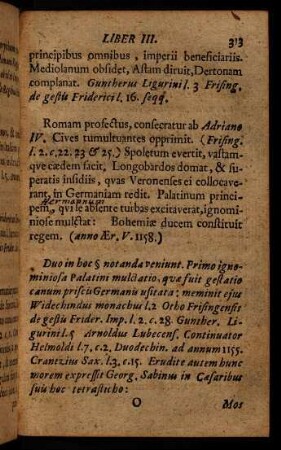 LIBER III. 313
principibus omnibus, imperii beneficiariis.
Mediolanum obsidet, Astam diruit, Dertonam
complanat. Guntherus Ligurini l. 3 Frising.
de gestis Friderici l. 16. seqq.
Romam profectus, consecratur ab Adriano
IV. Cives tumultuantes opprimit. (Frising.
l. 2. c. 22. 23 & 25.) Spoletum evertit, vastam-
que cædem facit, Longobardos domat, & su-
peratis insidiis, quas Veronenses ei collocave-
rant, in Germaniam redit. Palatinum princi-
Hermannum
pem, qui se absente turbas excitaverat, ignomi-
niose mulctat: Bohemiæ ducem constituit
regem. (anno Ær. V. 1158.)
Duo in hoc § notanda veniunt. Primo igno-
miniosa Palatini mulctatio, quæ fuit gestatio
canum priscis Germanis usitata; meminit ejus
Widechindus monachus l. 2 Otho Frisingensis
de gestis Frider. Imp. l. 2. c. 28. Gunther. Li-
gurini l. 5 Arnoldus Lubecens. Continuator
Helmoldi l. 7, c. 2, Duodechin. ad annum 1155.
Crantzius Sax. l. 3, c. 15. Erudite autem hunc
morem expressit Georg. Sabinus in Cæsaribus
suis hoc tetrasticho:
O Mos